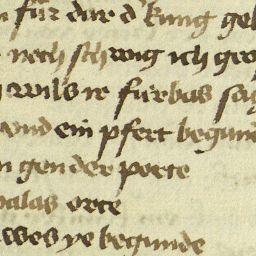 für dar d kung gel
noch schwig ich gro
wils ir fürbas sag
vnd ein pfert begund
n gen der porte
palas orte
wes ye begunde